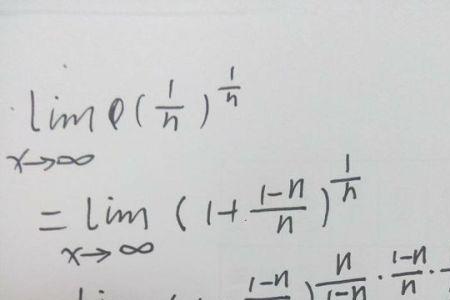 lim (1/n)^(1/n)
x→∞
= lim (1+ (1-n)/n)^(1/n)
x→∞
(1-n)/n)^(n/(1-n) · (1-n)/n ·